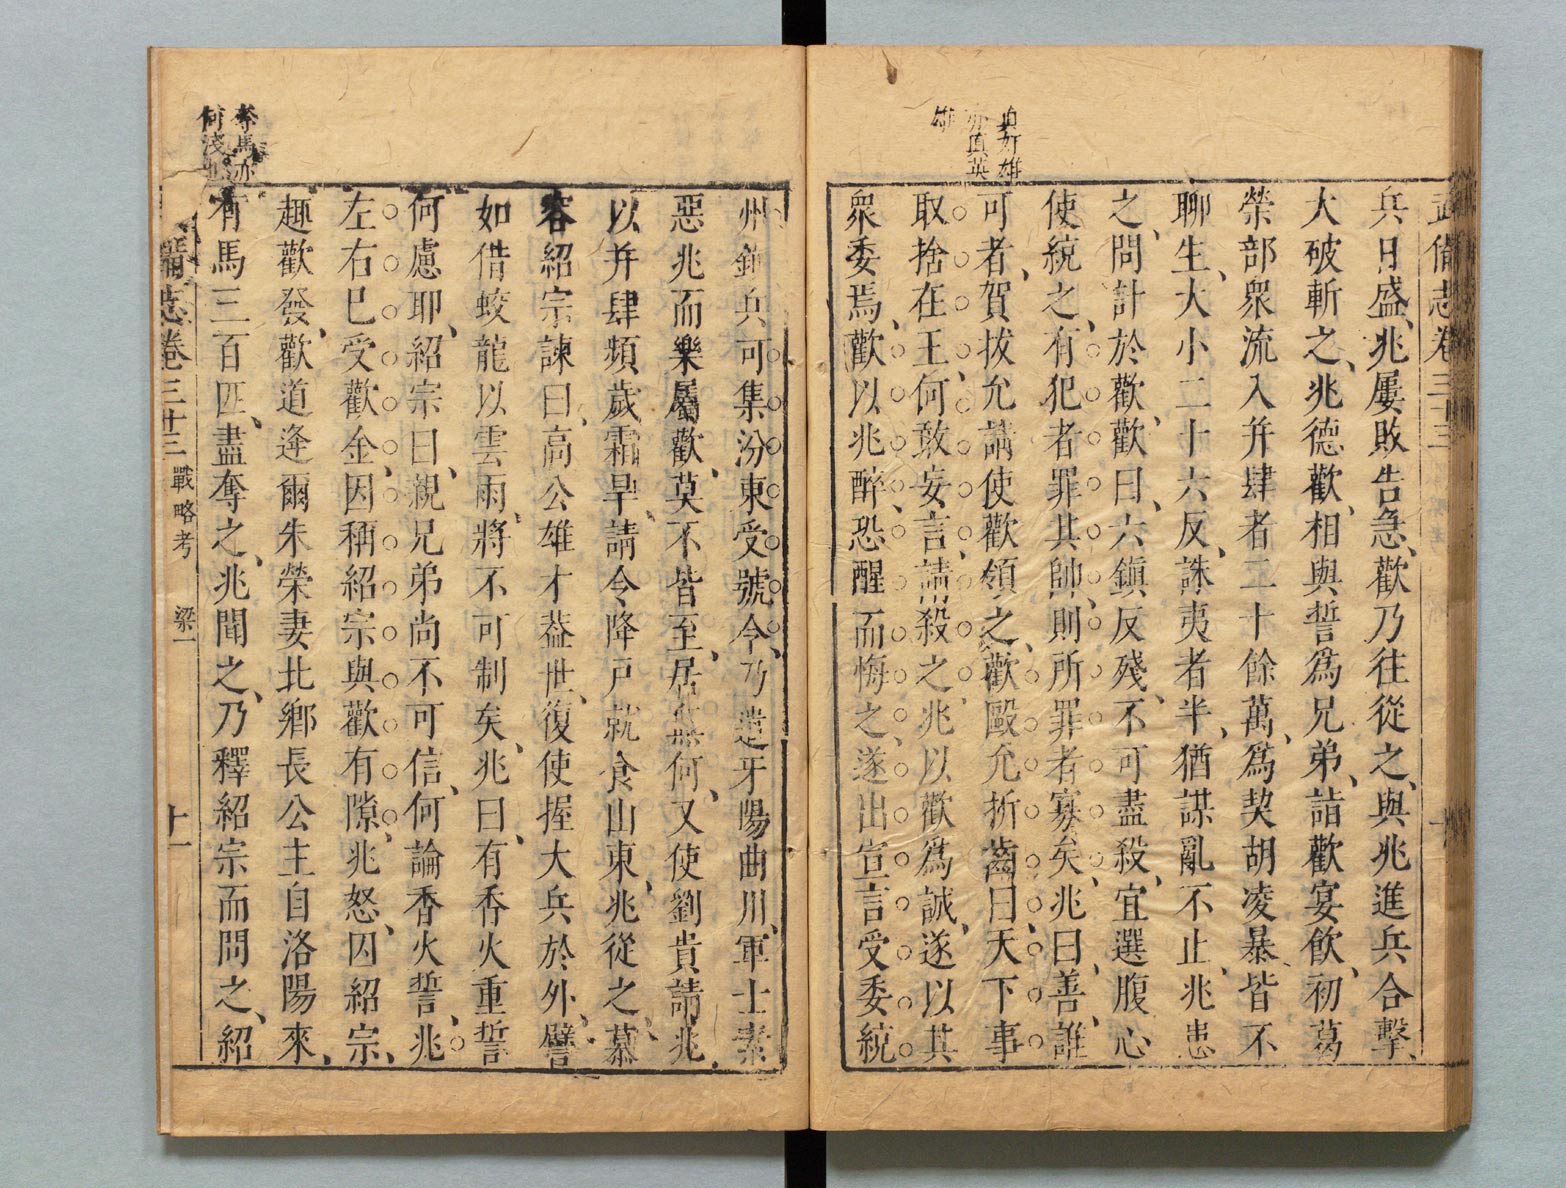 真奸雄
亦真英
雄
武備志卷三十三
兵日盛、兆屢敗告急、歡乃往從之、與兆進兵合擊、
大破斬之、兆德歡、相與誓爲兄弟、詣歡宴飲、初葛
榮部衆流入并肆者二十餘萬、爲契胡凌暴皆不
聊生、大小二十六反、誅夷者半、猶謀亂不止、兆患
之、問計於歡、歡曰、六鎮反殘、不可盡殺、宜選腹心
使統之、有犯者罪其帥、則所罪者寡矣、兆曰、善、誰
可者、賀拔允請使歡領之、歡毆允折齒曰、天下事
取捨在王、何敢妄言、請殺之、兆以歡爲誠、遂以其
衆委焉、歡以兆醉、恐醒而悔之、遂出宣言受委統
州鎮兵可集汾東受號令、乃建牙陽曲川、軍士素
惡兆而樂屬歡、莫不皆至、居無何、又使劉貴請兆、
以并肆頻歲霜旱、請令降戶就食山東、兆從之、慕
容紹宗諫曰、高公雄才葢世、復使握大兵於外、譬
如借蛟龍以雲雨、將不可制矣、兆曰、有香火重誓
何慮耶、紹宗曰、親兄弟尚不可信、何論香火誓、兆
左右已受歡金、因稱紹宗與歡有隙、兆怒、囚紹宗、
趣歡發、歡道逢爾朱榮妻北鄉長公主自洛陽來、
有馬三百匹、盡奪之、兆聞之、乃釋紹宗而問之、紹
奪馬亦
何淺也
備志卷三十三 戰略考 梁一 十一